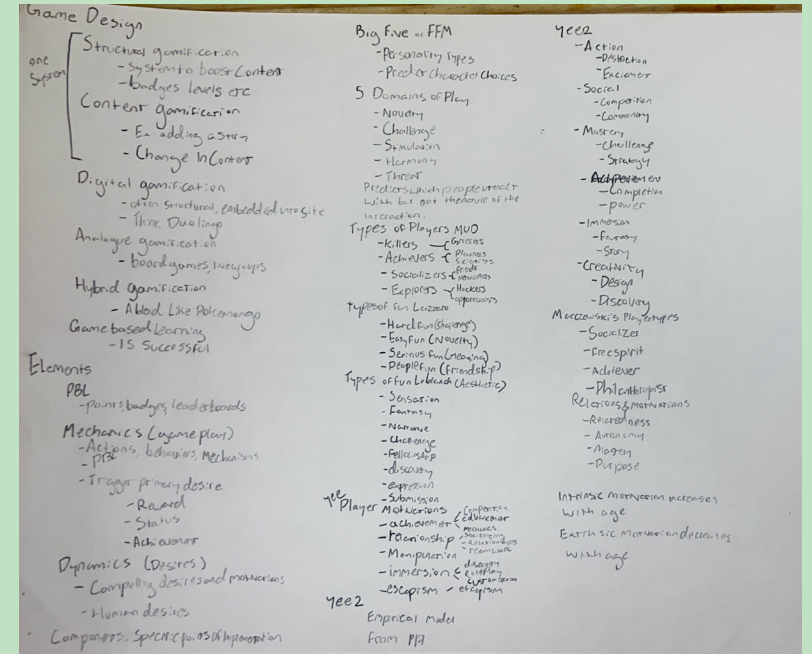 Game Design
one System
Structural gamification
- System to boost Content
- badges levels etc
Content gamification
- Ex adding a Story
- Change In Content
Digital gamification
- often structural, embedded into site
- Think Duolingo
Analogue gamification
- board games,
Hybrid gamification
- A blend Like Pokemongo
Game based Learning
- IS Successful
Elements
PBL
- points, badges, leaderboards
Mechanics (gameplay)
- Actions, behaviors, Mechanisms
- PBL
- Trigger primary desire
- Reward
- Status
- Achievement
Dynamics (Desires)
- Compelling desires and motivations
- Human desires
Components: Specific points of Implementation
Big Five or FFM
- Personality Types
- Predict Character Choices
5 Domains of Play
- Novelty
- Challenge
- Stimulation
- Harmony
- Threat
Predicts which people interact
with but not the nature of the
interaction.
Types of Players MUD
- Killers - Griefers
- Achievers - Planners Scientists
- Socializers - friends Networkers
- Explorers - Hackers opportunists
Types of fun Lazzaro
- Hard fun (challenge)
- Easy fun (Novelty)
- Serious fun (Meaning)
- People fun (friendship)
Types of fun (Aesthetic)
- Sensation
- Fantasy
- Narrative
- Challenge
- fellowship
- discovery
- expression
- Submission
yee Player Motivations
- achievement - Competition advancement mechanics
- relationship - Socializing Relationships Teamwork
- Manipulation
- immersion - discovery Roleplay Customization
- escapism - escapism
yee2
Empirical Model
From
yee2
- Action
- Destruction
- Excitement
- Social
- Competition
- Community
- Mastery
- Challenge
- Strategy
- Achievement
- Completion
- power
- Immersion
- Fantasy
- Story
- Creativity
- Design
- Discovery
Marczewski's Player types
- Socializer
- freespirit
- Achiever
- Philanthropist
Relations & Motivations
- Relatedness
- Autonomy
- Mastery
- Purpose
Intrinsic motivation increases
with age
Extrinsic Motivation decreases
with age